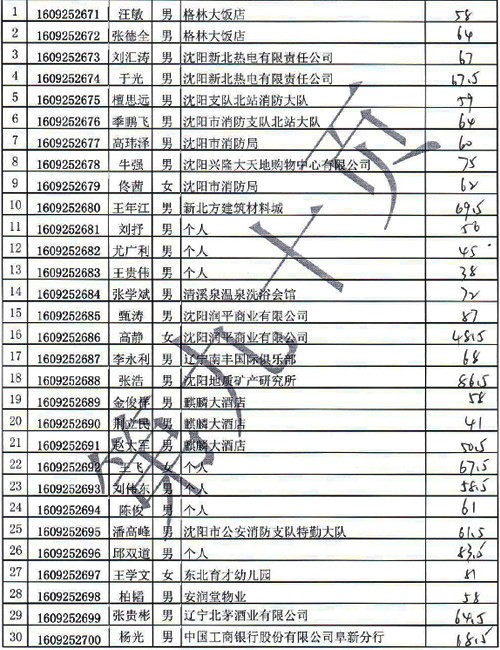 1 1609252671 汪敏 男 格林大饭店 58
2 1609252672 张德全 男 格林大饭店 64
3 1609252673 刘汇涛 男 沈阳新北热电有限责任公司 67
4 1609252674 于光 男 沈阳新北热电有限责任公司 67.5
5 1609252675 檀思远 男 沈阳支队北站消防大队 59
6 1609252676 季鹏飞 男 沈阳市消防支队北站大队 64
7 1609252677 高玮泽 男 沈阳市消防局 60
8 1609252678 牛强 男 沈阳兴隆大天地购物中心有限公司 75
9 1609252679 佟茜 女 沈阳市消防局 62
10 1609252680 王年江 男 新北方建筑材料城 69.5
11 1609252681 刘抒 男 个人 50
12 1609252682 尤广利 男 个人 45
13 1609252683 王贵伟 男 个人 38
14 1609252684 张学斌 男 清溪泉温泉洗浴会馆 72
15 1609252685 甄涛 男 沈阳润平商业有限公司 87
16 1609252686 高静 女 沈阳润平商业有限公司 48.5
17 1609252687 李永利 男 辽宁南丰国际俱乐部 68
18 1609252688 张浩 男 沈阳地质矿产研究所 86.5
19 1609252689 金俊锋 男 麒麟大酒店 58
20 1609252690 荆立民 男 麒麟大酒店 41
21 1609252691 赵大军 男 麒麟大酒店 50.5
22 1609252692 王飞 女 个人 67.5
23 1609252693 刘伟东 男 个人 58.5
24 1609252694 陈俊 男 个人 61
25 1609252695 潘高峰 男 沈阳市公安消防支队特勤大队 61.5
26 1609252696 邱双道 男 个人 83.5
27 1609252697 王学文 女 东北育才幼儿园 81
28 1609252698 柏韬 男 安润堂物业 58
29 1609252699 张贵彬 男 辽宁北茅酒业有限公司 64.5
30 1609252700 杨光 男 中国工商银行股份有限公司阜新分行 68.5
第九十页